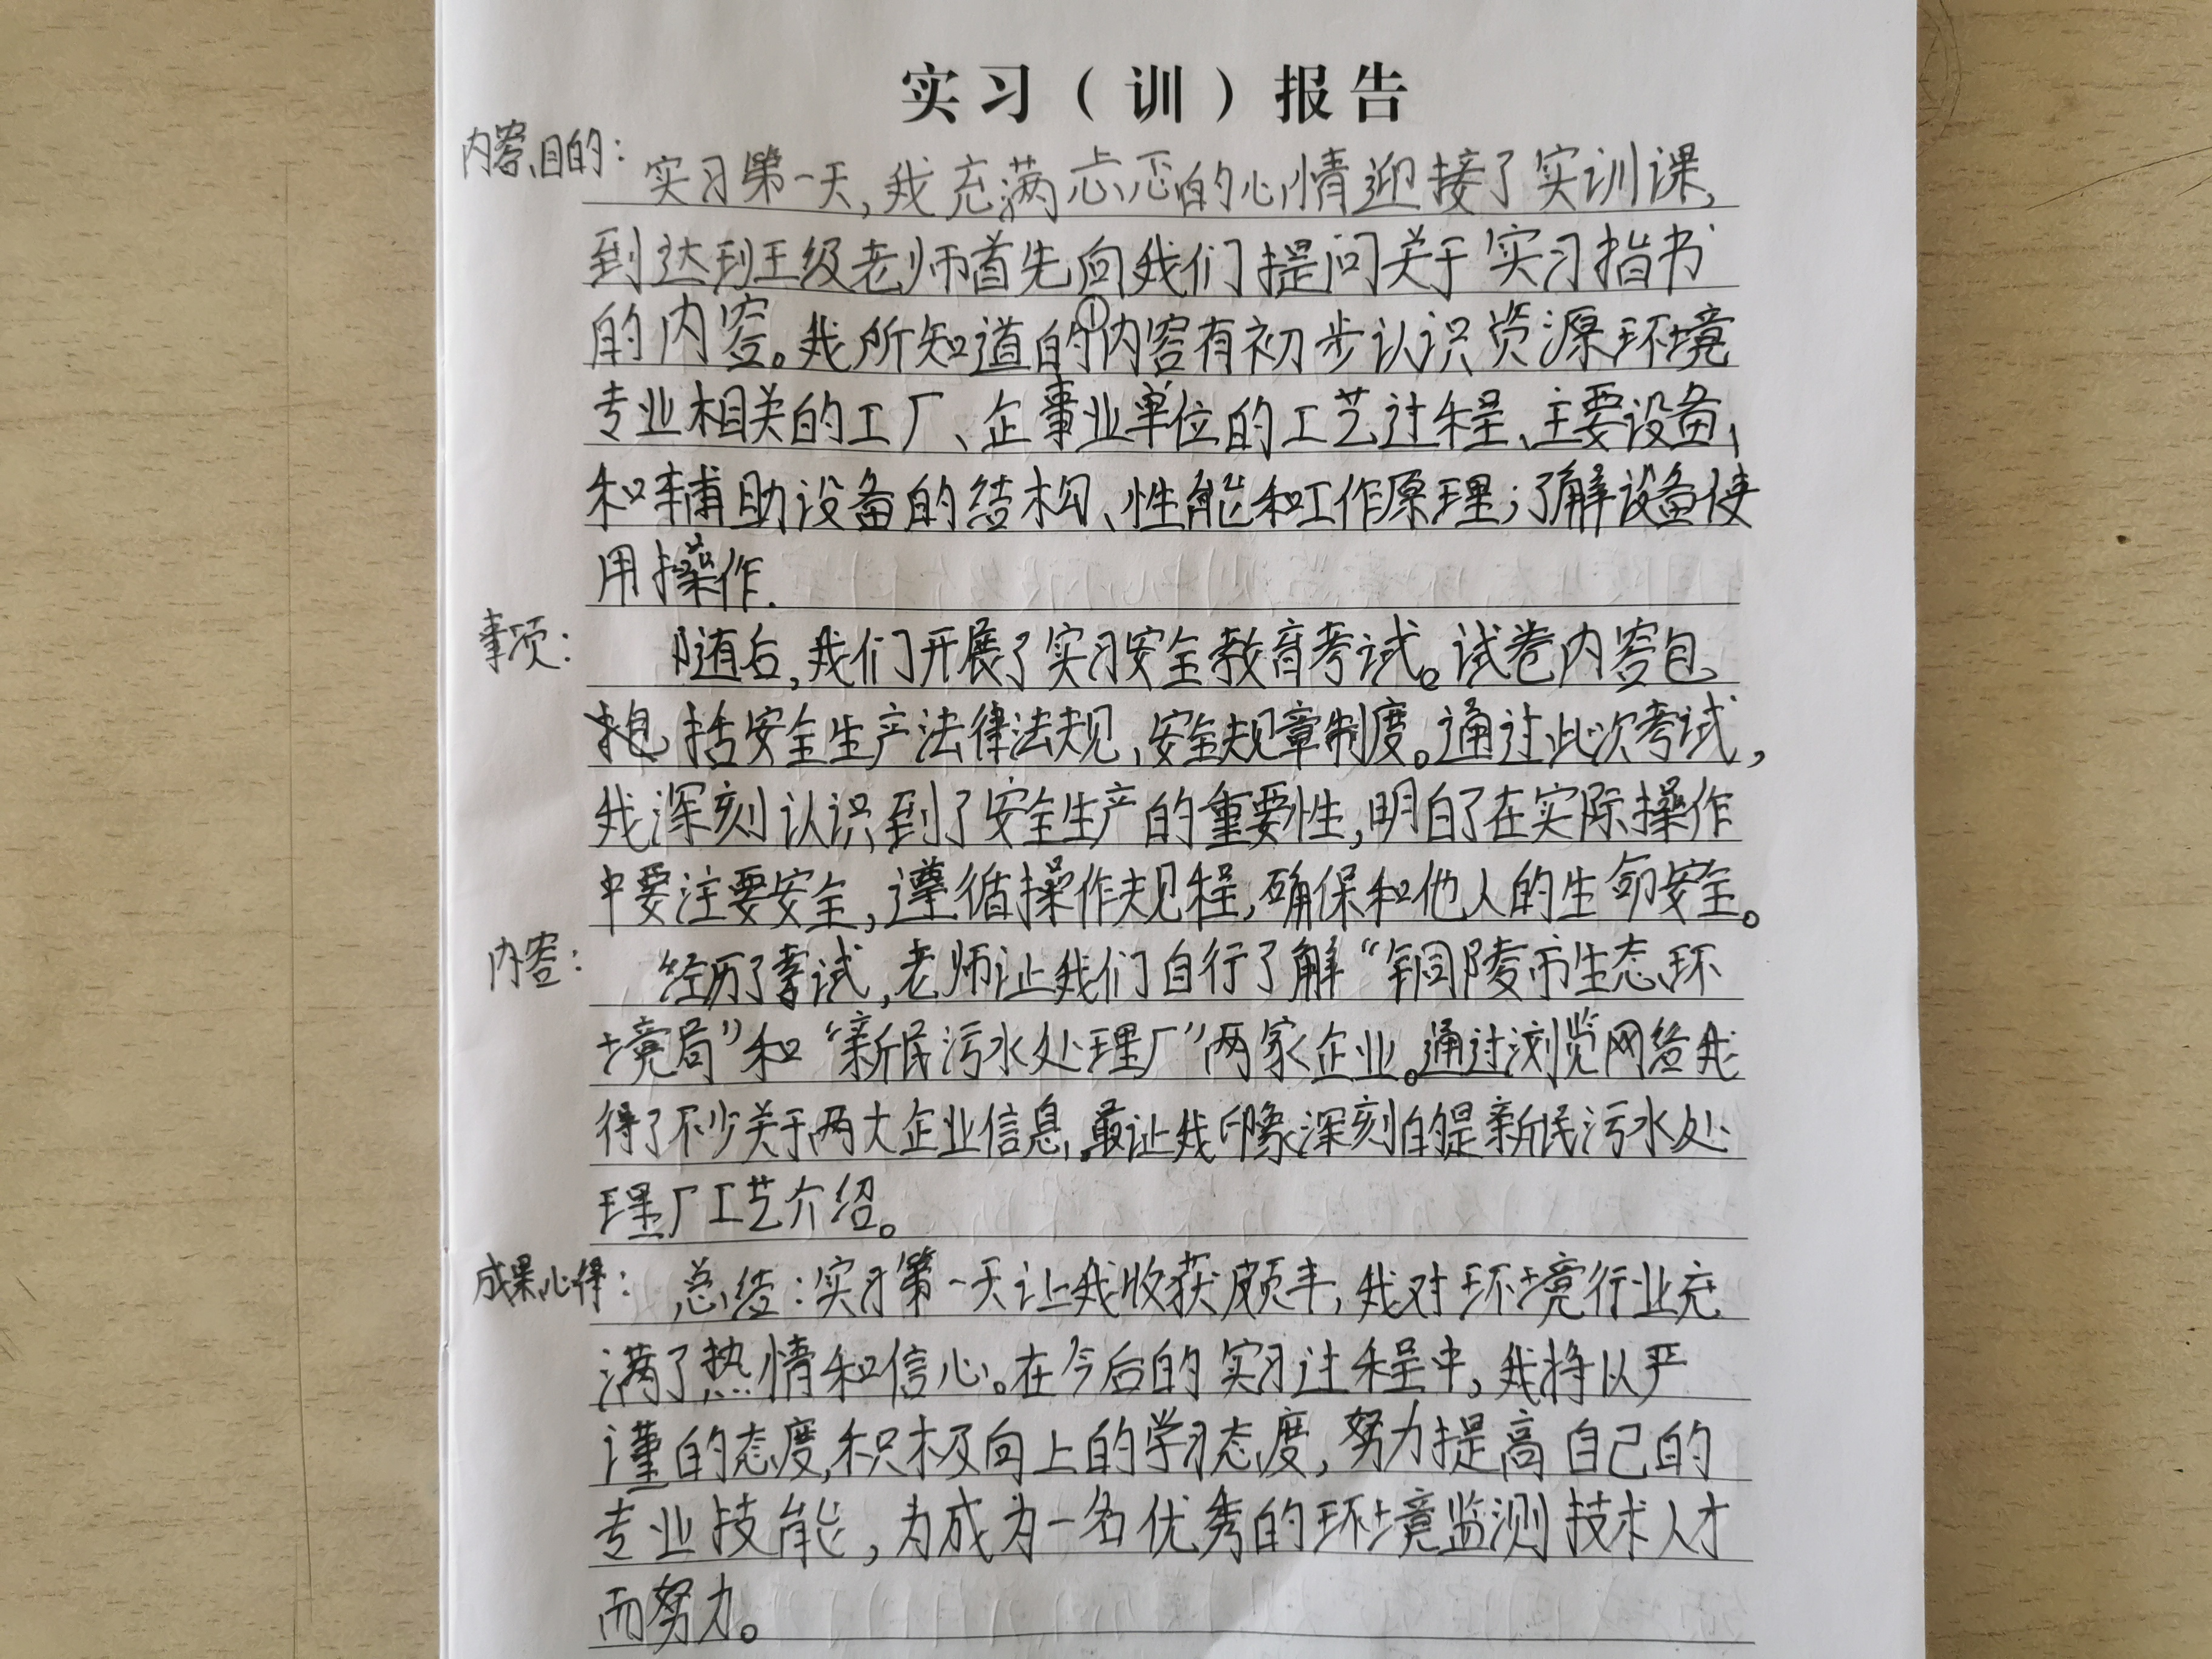 实习（训）报告
内容、目的：
实习第一天，我充满忐忑的心情迎接了实训课，
到达班级老师首先向我们提问关于实习指书
的内容。我所知道的①内容有初步认识资源环境
专业相关的工厂、企事业单位的工艺过程、主要设备、
和辅助设备的结构、性能和工作原理；了解设备使
用操作.
事项：
随后，我们开展了实习安全教育考试。试卷内容包
括安全生产法律法规、安全规章制度。通过此次考试，
我深刻认识到了安全生产的重要性，明白了在实际操作
中要注要安全，遵循操作规程，确保和他人的生命安全。
内容：
经历了考试，老师让我们自行了解“铜陵市生态环
境局”和“新民污水处理厂”两家企业。通过浏览网络我
得了不少关于两大企业信息，最让我印象深刻的是新民污水处
理厂工艺介绍。
成果心得：
总结：实习第一天让我收获颇丰，我对环境行业充
满了热情和信心。在今后的实习过程中，我将以严
谨的态度，积极向上的学习态度，努力提高自己的
专业技能，为成为一名优秀的环境监测技术人才
而努力。